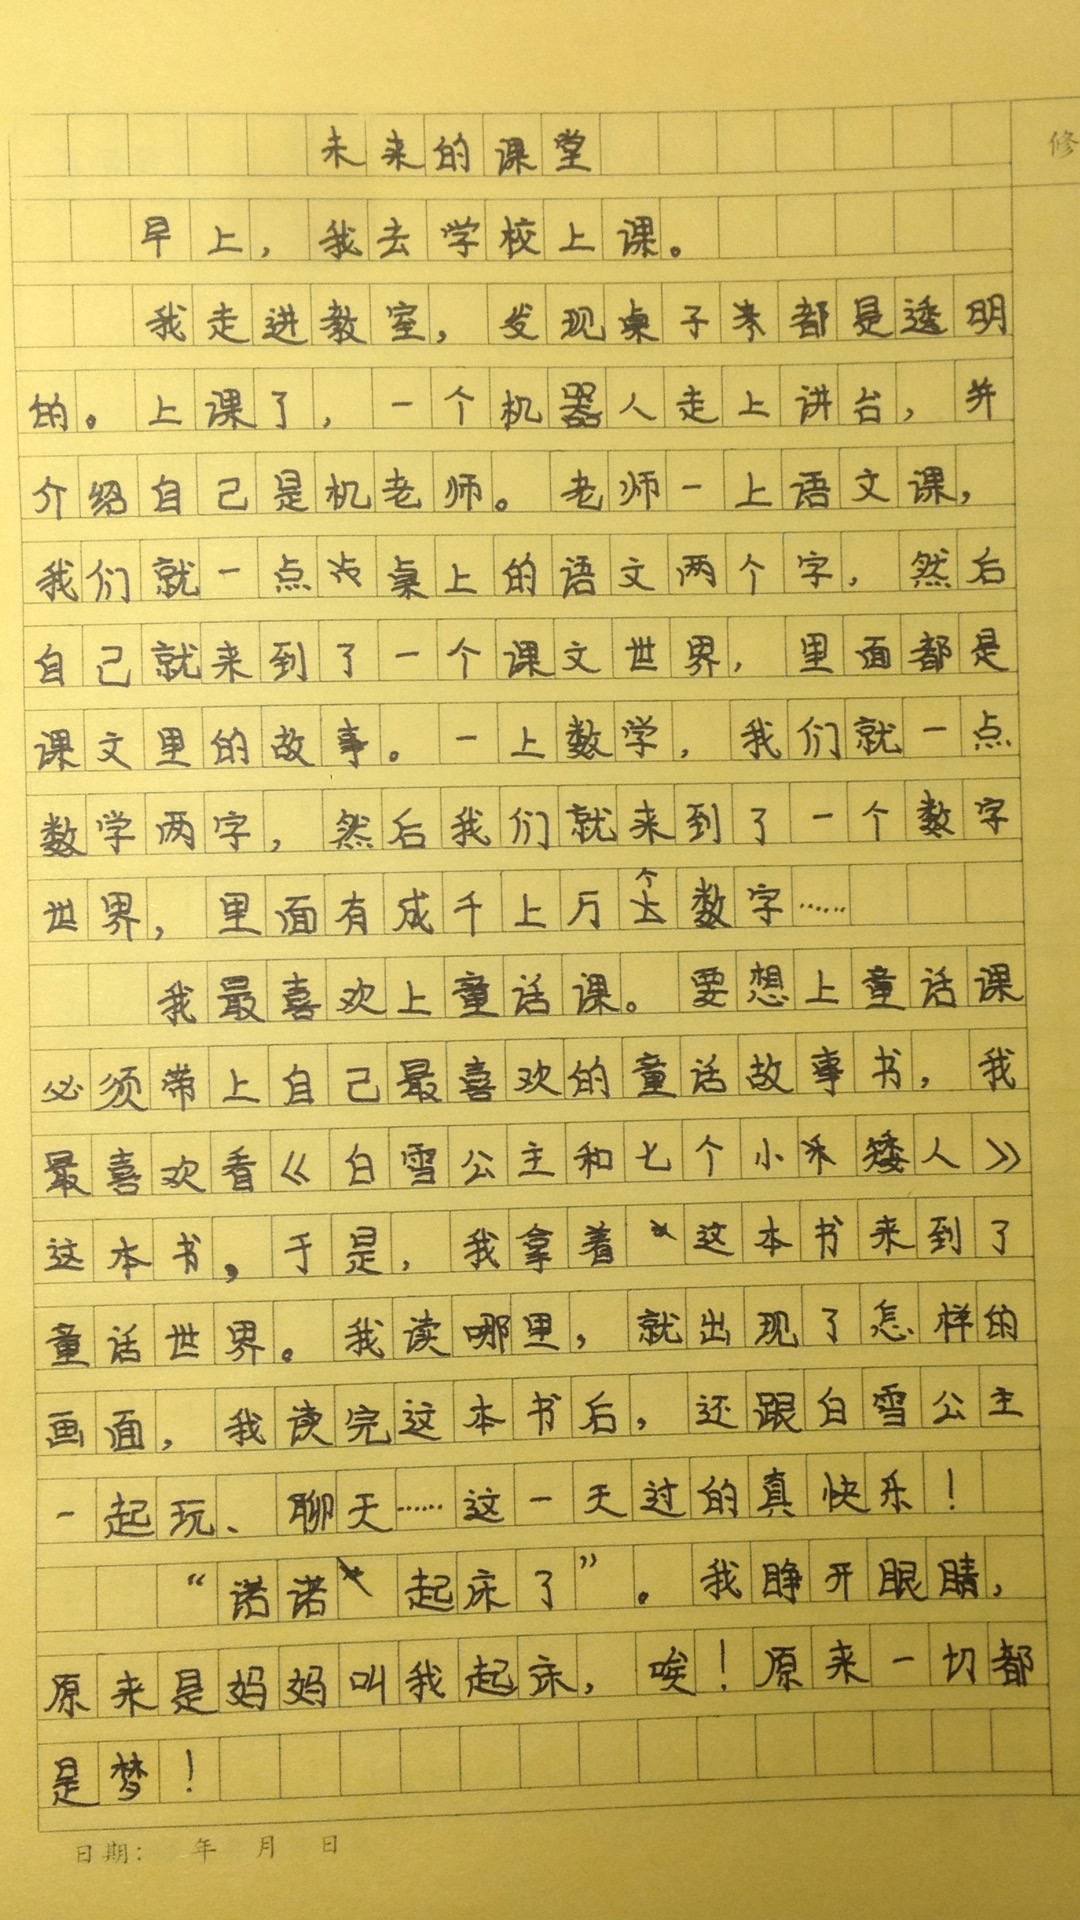 未来的课堂
修
早上，我去学校上课。
我走进教室，发现桌子都是透明
的。上课了，一个机器人走上讲台，并
介绍自己是机老师。老师一上语文课，
我们就一点桌上的语文两个字，然后
自己就来到了一个课文世界，里面都是
课文里的故事。一上数学，我们就一点
数学两字，然后我们就来到了一个数字
世界，里面有成千上万个数字……
我最喜欢上童话课。要想上童话课
必须带上自己最喜欢的童话故事书，我
最喜欢看《白雪公主和七个小矮人》
这本书，于是，我拿着这本书来到了
童话世界。我读哪里，就出现了怎样的
画面，我读完这本书后，还跟白雪公主
一起玩、聊天……这一天过的真快乐！
“诺诺起床了”。我睁开眼睛，
原来是妈妈叫我起床，唉！原来一切都
是梦！
日期： 年 月 日